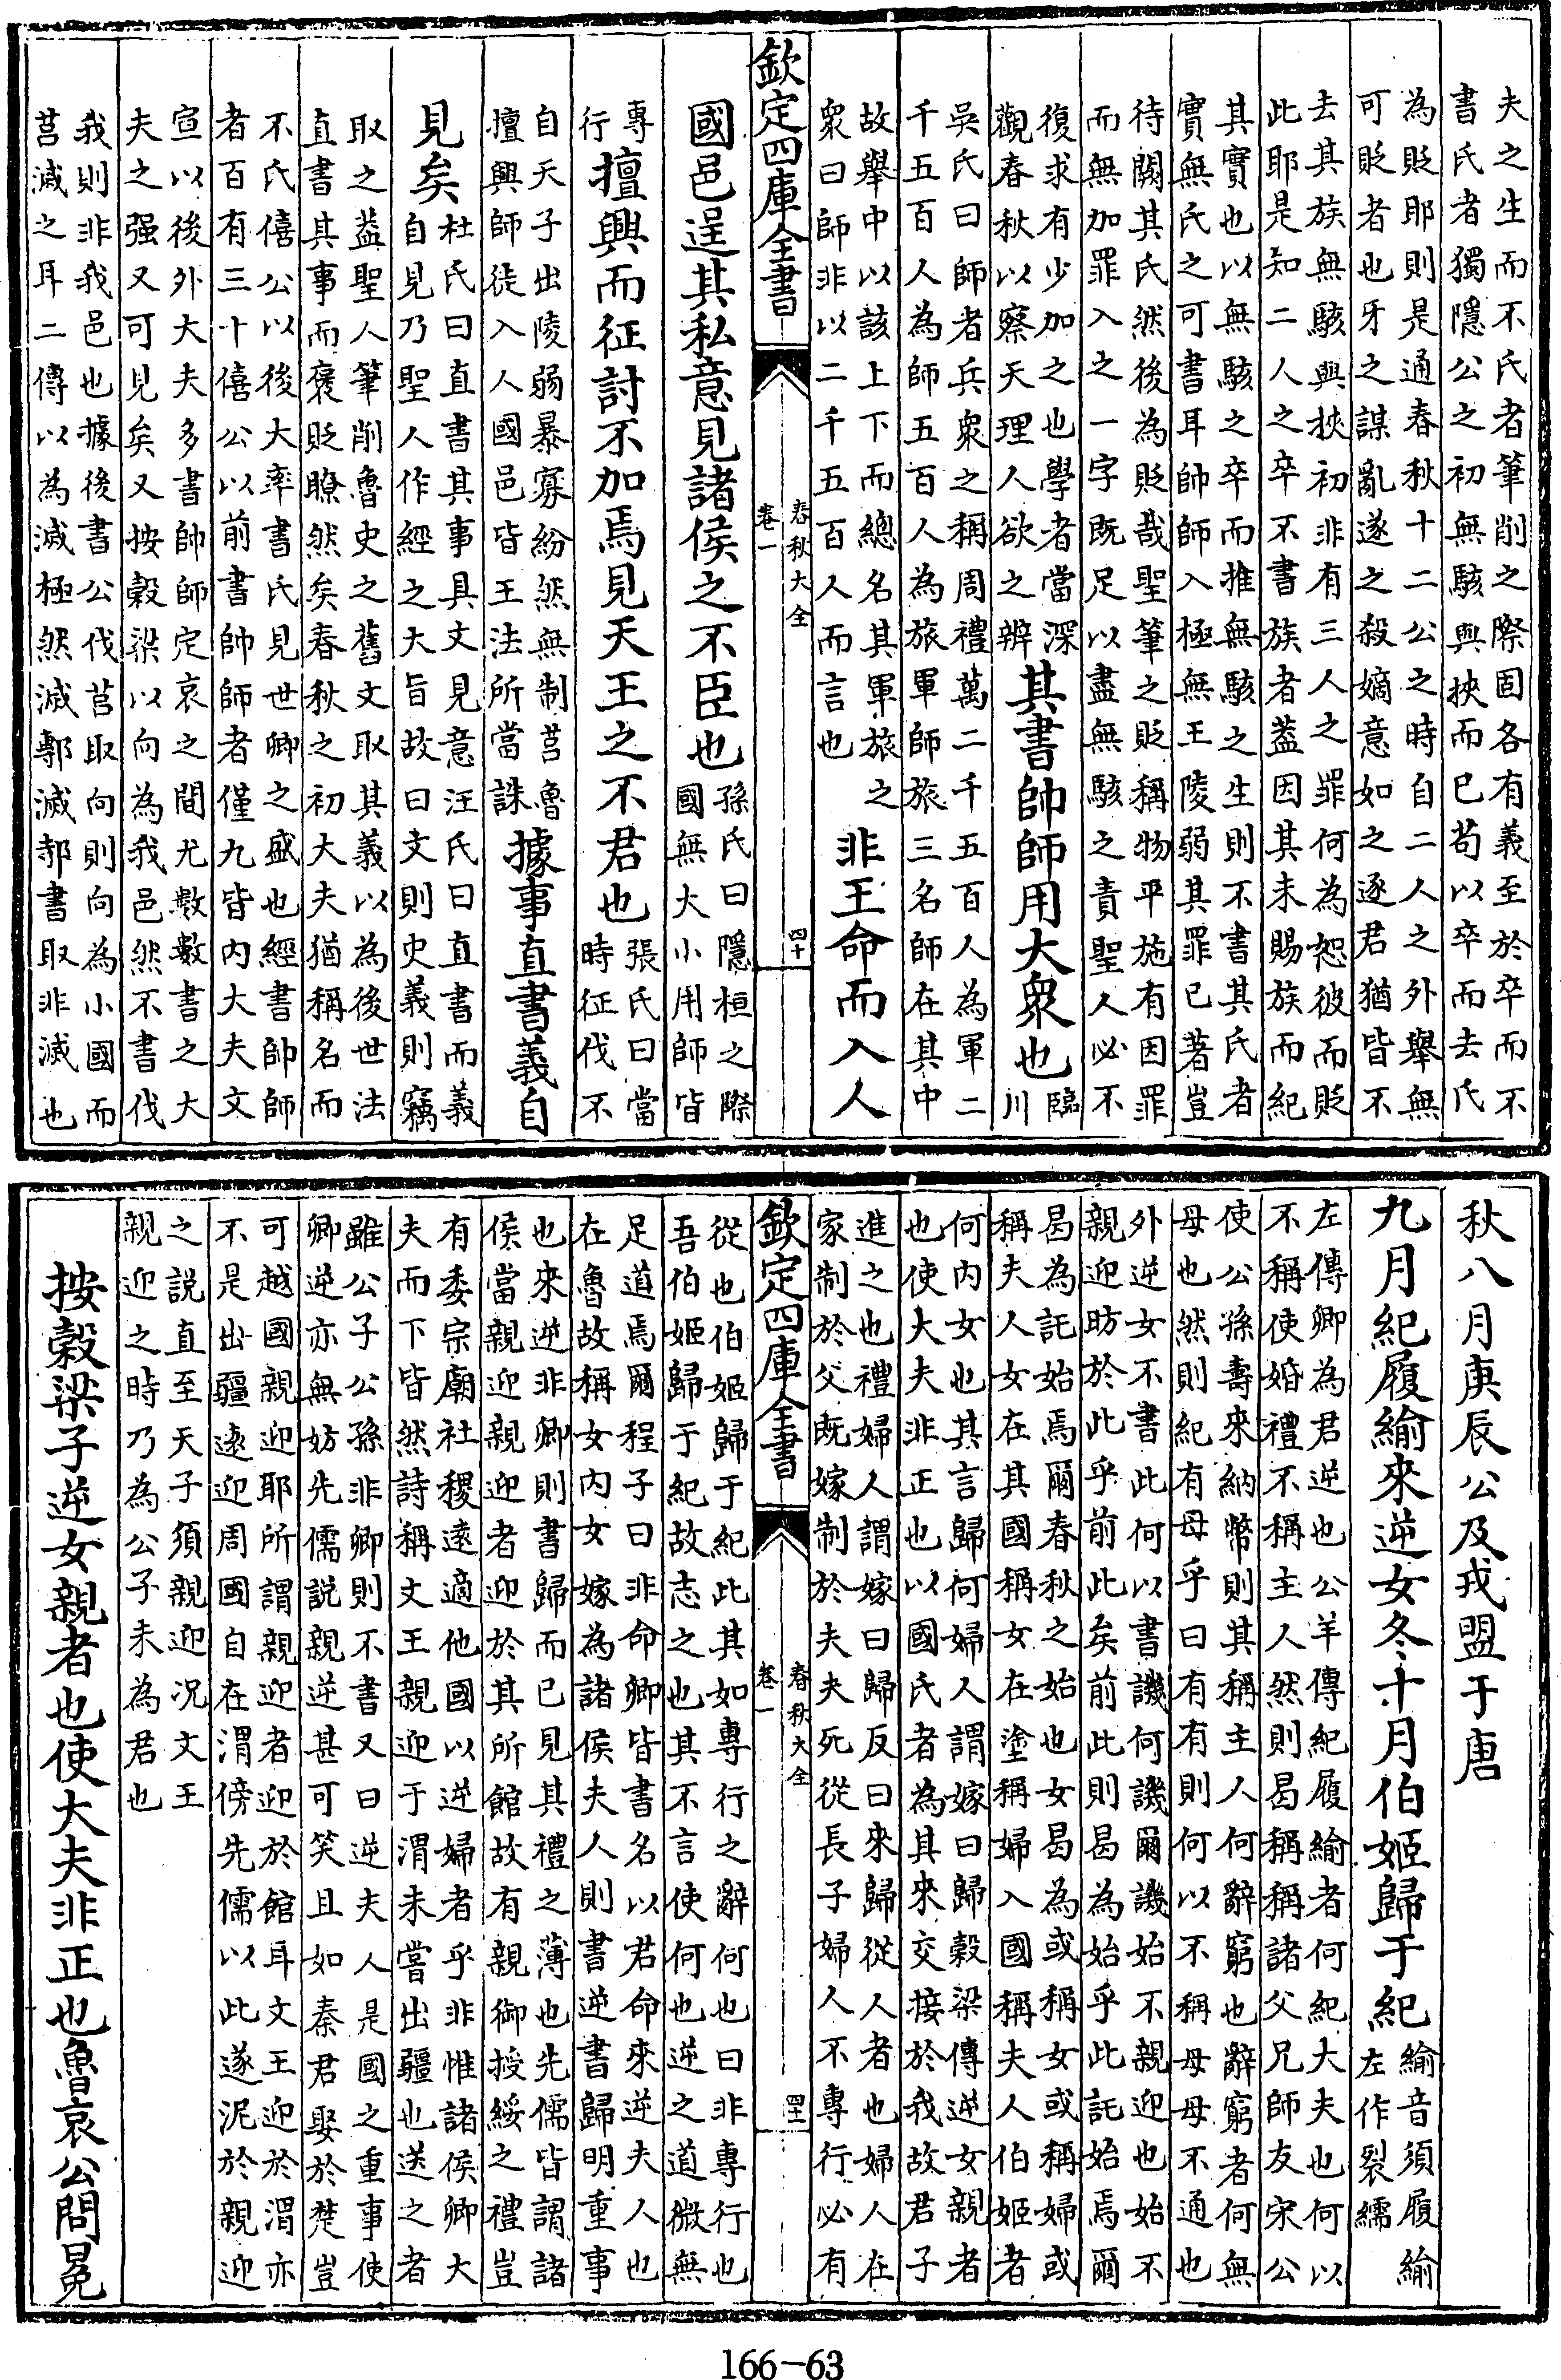 夫之生而不氏者筆削之際固各有義至於卒而不
書氏者獨隱公之初無駭與挾而已苟以卒而去氏
為貶耶則是通春秋十二公之時自二人之外舉無
可貶者也牙之謀亂遂之殺嫡意如之逐君猶皆不
去其族無駭與挾初非有三人之罪何為恕彼而貶
此耶是知二人之卒不書族者葢因其未賜族而紀
其實也以無駭之卒而推無駭之生則不書其氏者
實無氏之可書耳帥師入極無王陵弱其罪已著豈
待闕其氏然後為貶哉聖筆之貶稱物平施有因罪
而無加罪入之一字既足以盡無駭之責聖人必不
復求有少加之也學者當深
觀春秋以察天理人欲之辨
其書帥師用大衆也
臨
川
吳氏曰師者兵衆之稱周禮萬二千五百人為軍二
千五百人為師五百人為旅軍師旅三名師在其中
故舉中以該上下而總名其軍旅之
衆曰師非以二千五百人而言也
非王命而入人
欽定四庫全書
春秋大全
卷一
四十
國邑逞其私意見諸侯之不臣也
孫氏曰隱桓之際
國無大小用師皆
專
行
擅興而征討不加焉見天王之不君也
張氏曰當
時征伐不
自天子出陵弱暴寡紛然無制莒魯
擅興師徒入人國邑皆王法所當誅
據事直書義自
見矣
杜氏曰直書其事具文見意汪氏曰直書而義
自見乃聖人作經之大旨故曰文則史義則竊
取之葢聖人筆削魯史之舊文取其義以為後世法
直書其事而褒貶瞭然矣春秋之初大夫猶稱名而
不氏僖公以後大率書氏見世卿之盛也經書帥師
者百有三十僖公以前書帥師者僅九皆內大夫文
宣以後外大夫多書帥師定哀之間尤數數書之大
夫之强又可見矣又按穀梁以向為我邑然不書伐
我則非我邑也據後書公伐莒取向則向為小國而
莒滅之耳二傳以為滅極然滅鄟滅邿書取非滅也
秋八月庚辰公及戎盟于唐
九月紀履緰來逆女冬十月伯姬歸于紀
緰音須履緰
左作裂繻
左傳卿為君逆也公羊傳紀履緰者何紀大夫也何以
不稱使婚禮不稱主人然則曷稱稱諸父兄師友宋公
使公孫壽來納幣則其稱主人何辭窮也辭窮者何無
母也然則紀有母乎曰有有則何以不稱母母不通也
外逆女不書此何以書譏何譏爾譏始不親迎也始不
親迎昉於此乎前此矣前此則曷為始乎此託始焉爾
曷為託始焉爾春秋之始也女曷為或稱女或稱婦或
稱夫人女在其國稱女在塗稱婦入國稱夫人伯姬者
何內女也其言歸何婦人謂嫁曰歸穀梁傳逆女親者
也使大夫非正也以國氏者為其來交接於我故君子
進之也禮婦人謂嫁曰歸反曰來歸從人者也婦人在
家制於父既嫁制於夫夫死從長子婦人不專行必有
欽定四庫全書
春秋大全
卷一
四十一
從也伯姬歸于紀此其如專行之辭何也曰非專行也
吾伯姬歸于紀故志之也其不言使何也逆之道微無
足道焉爾程子曰非命卿皆書名以君命來逆夫人也
在魯故稱女內女嫁為諸侯夫人則書逆書歸明重事
也來逆非卿則書歸而已見其禮之薄也先儒皆謂諸
侯當親迎親迎者迎於其所館故有親御授綏之禮豈
有委宗廟社稷遠適他國以逆婦者乎非惟諸侯卿大
夫而下皆然詩稱文王親迎于渭未嘗出疆也送之者
雖公子公孫非卿則不書又曰逆夫人是國之重事使
卿逆亦無妨先儒說親逆甚可笑且如秦君娶於楚豈
可越國親迎耶所謂親迎者迎於館耳文王迎於渭亦
不是出疆遠迎周國自在渭傍先儒以此遂泥於親迎
之説直至天子須親迎況文王
親迎之時乃為公子未為君也
按穀梁子逆女親者也使大夫非正也魯哀公問冕
166-63